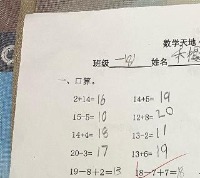 数学天地
班级 一(2) 姓名
一、口算。
2+14=16 14+5=19
15-5=10 12+8=20
14+4=18 13-2=11
20-3=17 13+6=19
19-8+2=13 18-7+7=18